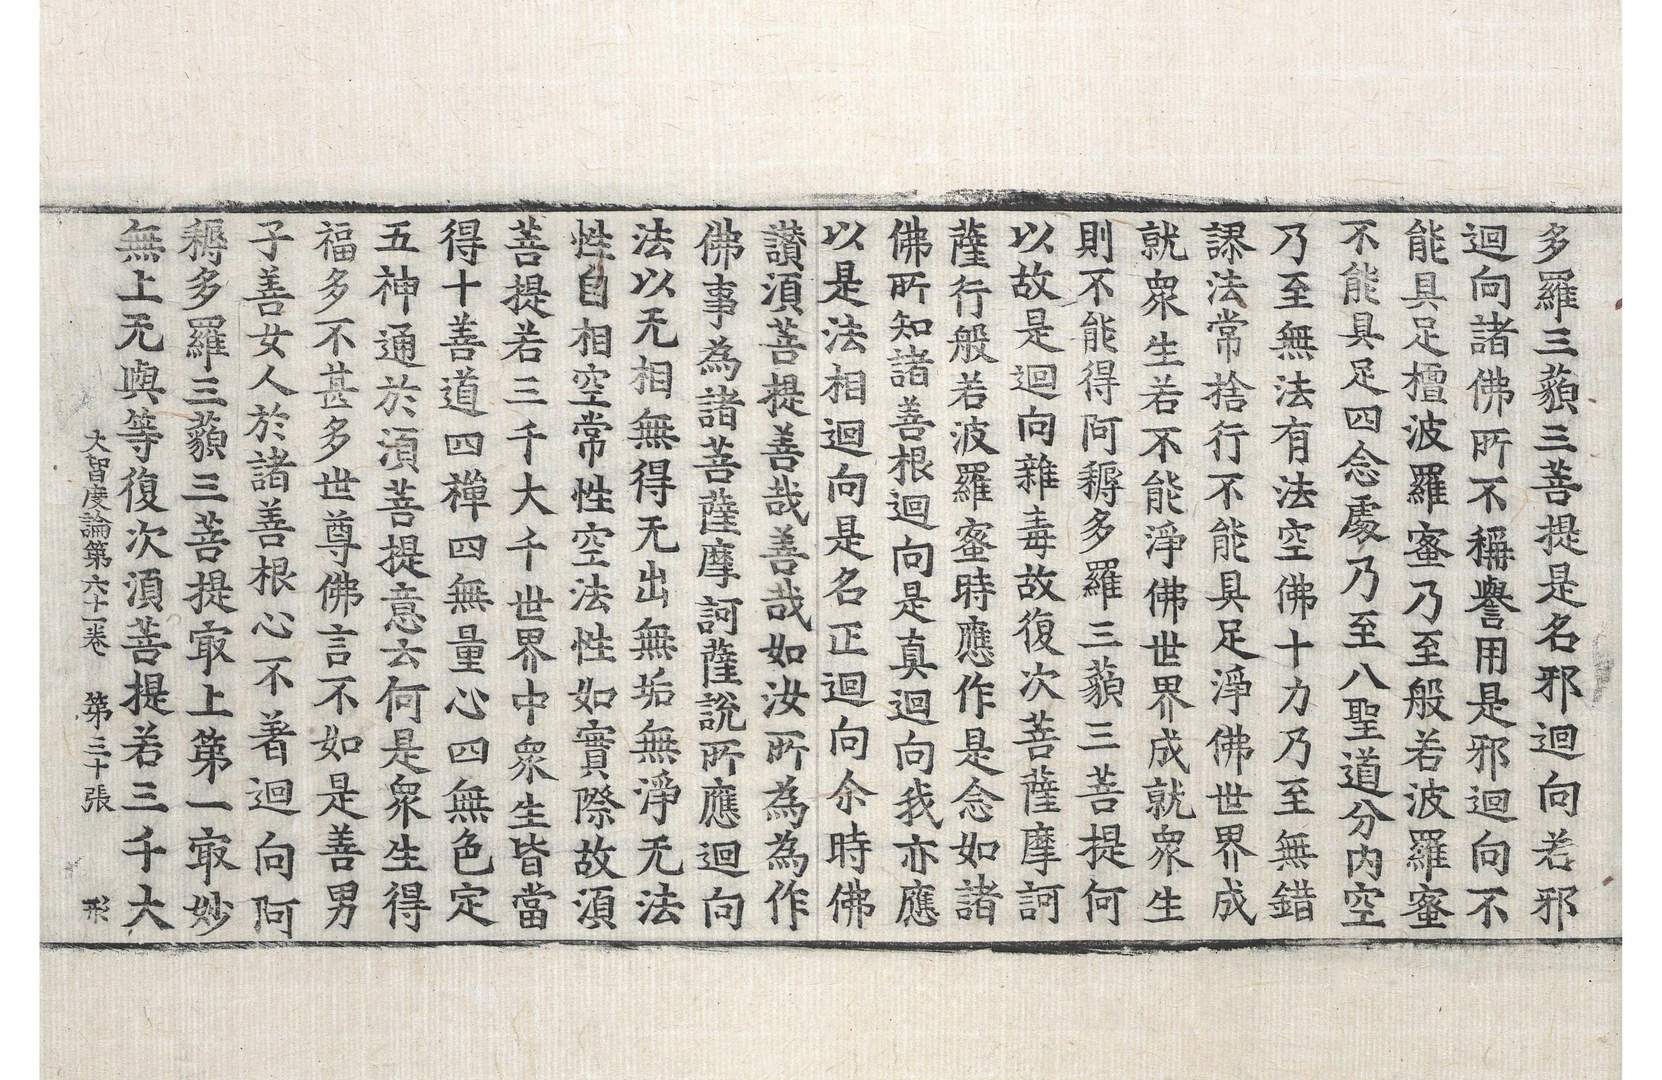 多羅三藐三菩提是名邪迴向若邪
迴向諸佛所不稱譽用是邪迴向不
能具足檀波羅蜜乃至般若波羅蜜
不能具足四念處乃至八聖道分內空
乃至無法有法空佛十力乃至無錯
謬法常捨行不能具足淨佛世界成
就衆生若不能淨佛世界成就衆生
則不能得阿耨多羅三藐三菩提何
以故是迴向雜毒故復次菩薩摩訶
薩行般若波羅蜜時應作是念如諸
佛所知諸善根迴向是真迴向我亦應
以是法相迴向是名正迴向尒時佛
讚湏菩提善哉善哉如汝所為為作
佛事為諸菩薩摩訶薩說所應迴向
法以无相無得无出無垢無淨无法
性自相空常性空法性如實際故湏
菩提若三千大千世界中衆生皆當
得十善道四禪四無量心四無色定
五神通於湏菩提意云何是衆生得
福多不甚多世尊佛言不如是善男
子善女人於諸善根心不著迴向阿
耨多羅三藐三菩提冣上第一冣妙
無上无與等復次湏菩提若三千大
大智度論第六十一卷 第三十張 形